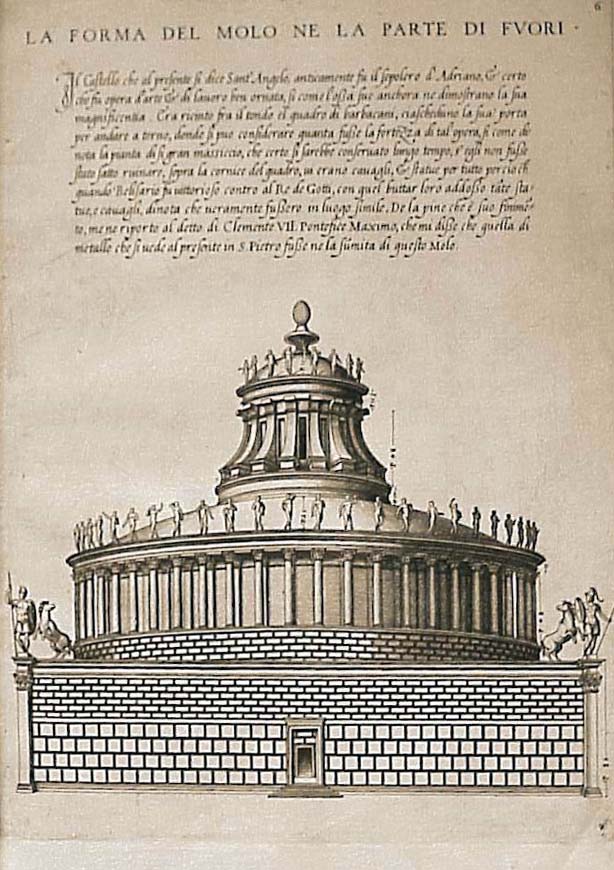 6
LA FORMA DEL MOLO NE LA PARTE DI FVORI ·
Il Castello che al presente si dice Sant'Angelo, anticamente fu il sepolcro d'Adriano, & certo
che fu opera d'arte & di lauoro ben ornata, si come l'ossa sue anchora ne dimostrano la sua
magnificentia. Era ricinto fra il tondo el quadro di barbacani, ciascheduno la sua porta
per andare a torno, donde si puo considerare quanta fusse la fortezza di tal opera, si come di-
nota la pianta di si gran massiccio, che certo si sarebbe conseruato lungo tempo, s'egli non fusse
stato fatto ruinare, sopra la cornice del quadro, ui erano cauagli, & statue per tutto percioch
quando Belisario fu uittorioso contro al Re de Gotti, con quel buttar loro addosso tate sta-
tue, e cauagli, dinota che ueramente fussero in luogo simile. De la pine che è suo finime-
to, me ne riporto al detto di Clemente VII. Pontefice Maximo, che mi disse che quella di
metallo che si uede al presente in S. Pietro fusse ne la sumita di questo Molo.